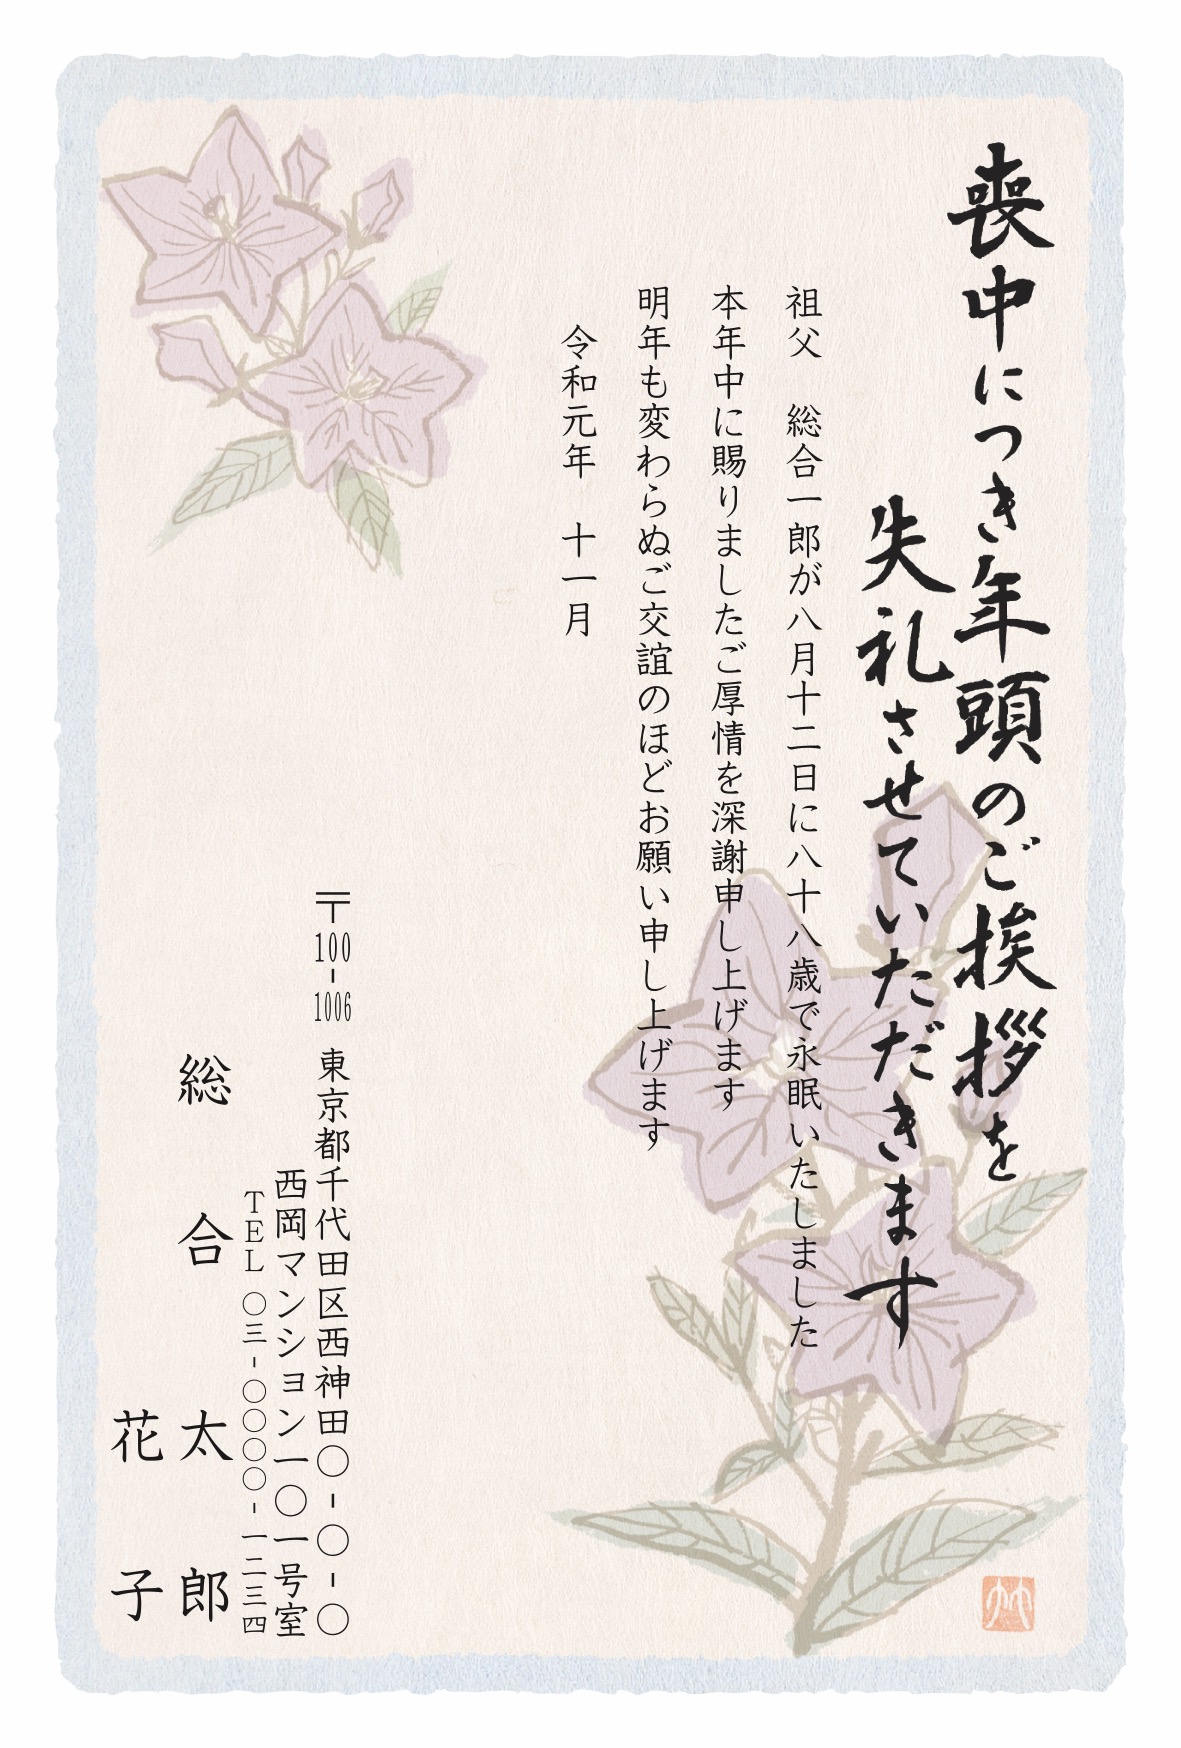 喪中につき年頭のご挨拶を
失礼させていただきます
祖父　総合一郎が八月十二日に八十八歳で永眠いたしました
本年中に賜りましたご厚情を深謝申し上げます
明年も変わらぬご交誼のほどお願い申し上げます
令和元年　十一月
〒100-1006　東京都千代田区西神田〇-〇-〇
西岡マンション一〇一号室
TEL 〇三-〇〇〇〇-一二三四
総合 太郎
花子